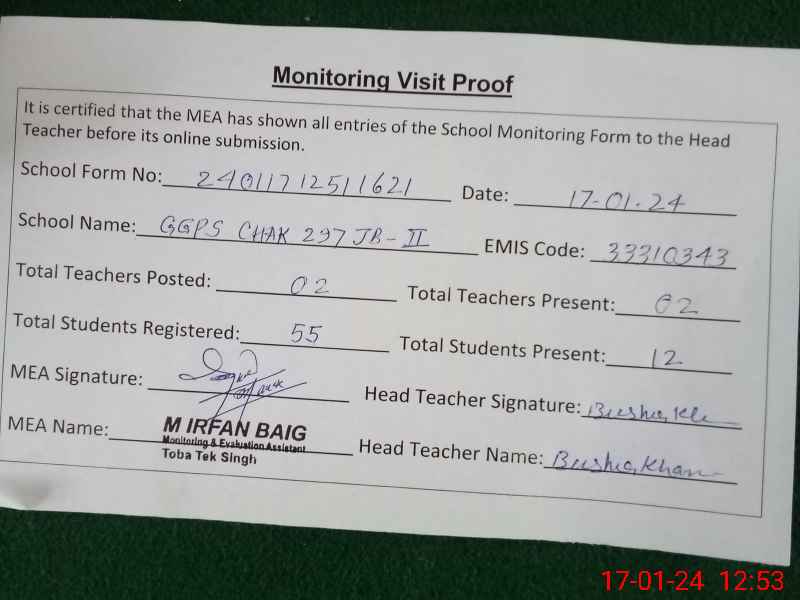 Monitoring Visit Proof
It is certified that the MEA has shown all entries of the School Monitoring Form to the Head
Teacher before its online submission.
School Form No: 24011712511621 Date: 17-01-24
School Name: GGPS CHAK 297 JB-II EMIS Code: 33310343
Total Teachers Posted: 02 Total Teachers Present: 02
Total Students Registered: 55 Total Students Present: 12
MEA Signature: Head Teacher Signature:
MEA Name: M IRFAN BAIG Head Teacher Name: Bushra Khan
Monitoring & Evaluation Assistant
Toba Tek Singh
17-01-24 12:53